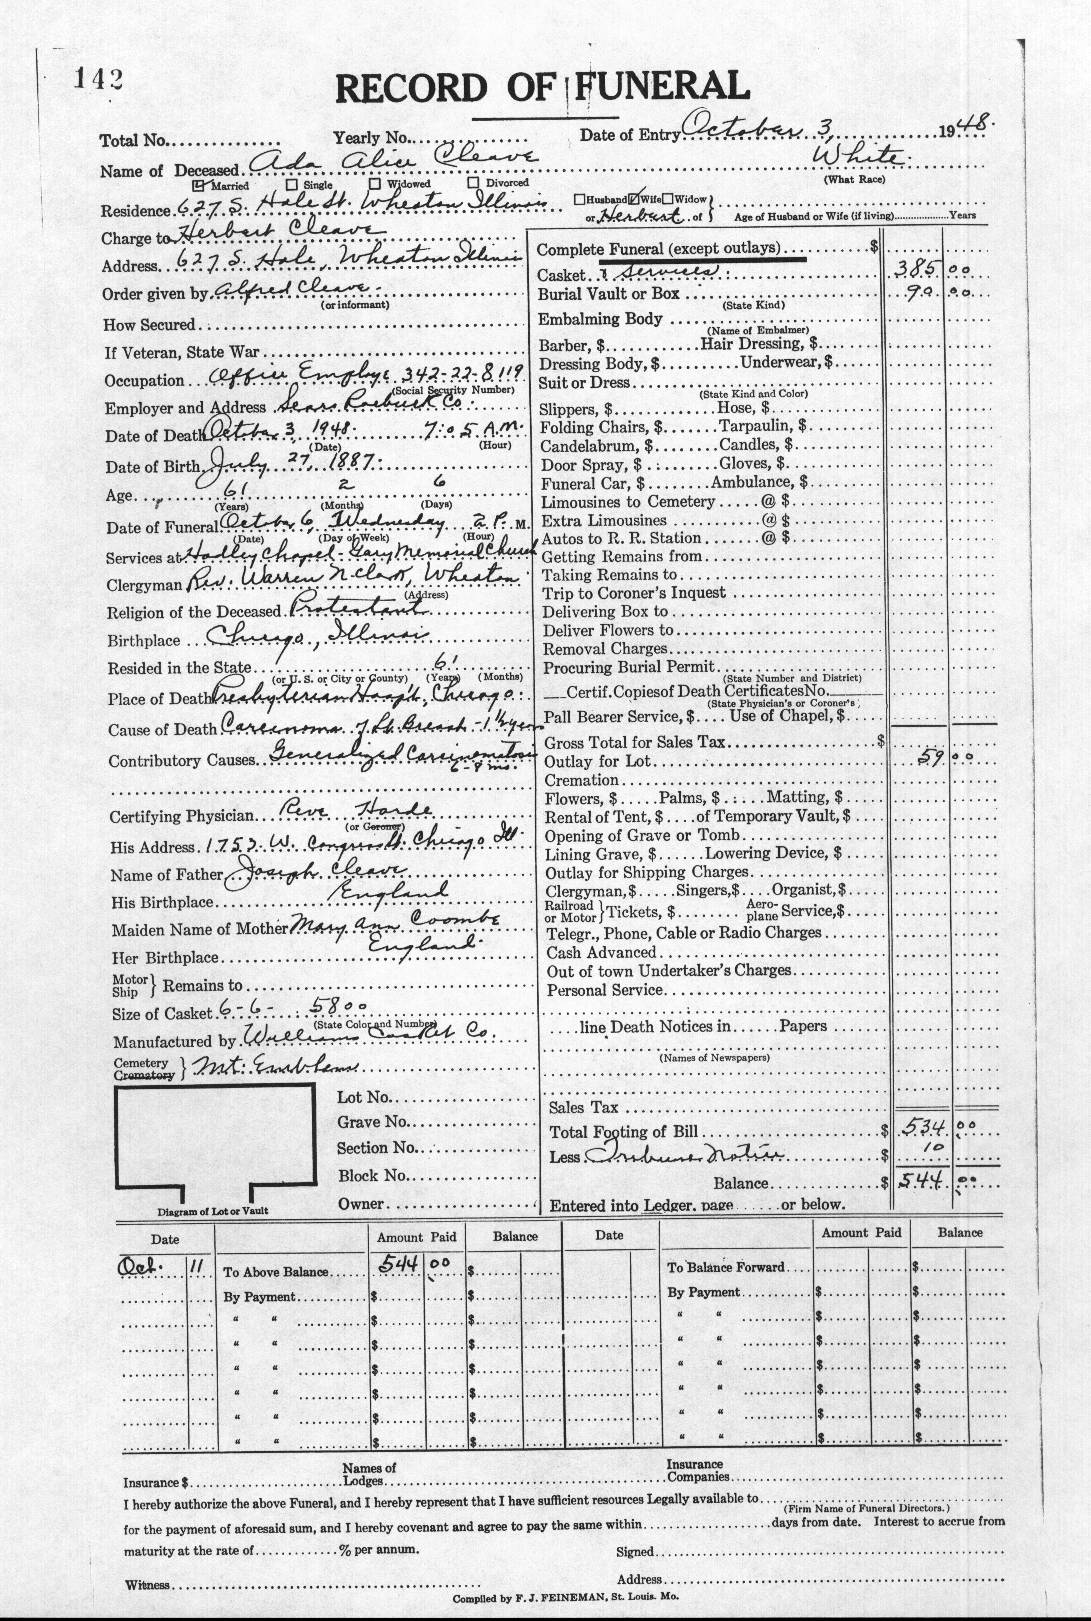 142
RECORD OF FUNERAL
Total No. Yearly No. Date of Entry October 3, 1948.
Name of Deceased Ada Alice Cleave White.
☑ Married ☐ Single ☐ Widowed ☐ Divorced (What Race)
Residence 627 S. Hale St. Wheaton Illinois ☐ Husband ☑ Wife ☐ Widow or Herbert of } Age of Husband or Wife (if living) Years
Charge to Herbert Cleave
Address 627 S. Hale, Wheaton Illinois
Order given by Alfred Cleave.
(or informant)
How Secured
If Veteran, State War
Occupation Office Employe 342-22-8119
(Social Security Number)
Employer and Address Sears Roebuck Co.
Date of Death October 3, 1948. 7:05 A.M.
(Date) (Hour)
Date of Birth July 27, 1887.
Age 61 2 6
(Years) (Months) (Days)
Date of Funeral October 6, Wednesday 2 P. M.
(Date) (Day of Week) (Hour)
Services at Hadley Chapel - Gary Memorial Church
Clergyman Rev. Warren N Clark, Wheaton
(Address)
Religion of the Deceased Protestant
Birthplace Chicago, Illinois
Resided in the State 61
(or U. S. or City or County) (Years) (Months)
Place of Death Presbyterian Hosp't, Chicago.
Cause of Death Carcinoma of Lt. Breast - 1 1/2 years
Contributory Causes Generalized Carcinomatosis
6-8 mo.
Certifying Physician Harde
(or Coroner)
His Address 1753 W. Congress St. Chicago Ill.
Name of Father Joseph Cleave
His Birthplace England
Maiden Name of Mother Mary Ann Coombe
Her Birthplace England.
Motor Ship } Remains to
Size of Casket 6-6- 5800
(State Color and Number)
Manufactured by Williams Casket Co.
Cemetery Crematory } Mt.
Lot No.
Grave No.
Section No.
Block No.
Owner
Diagram of Lot or Vault
Complete Funeral (except outlays) $
Casket & Services. 385 00
Burial Vault or Box 90 00
(State Kind)
Embalming Body
(Name of Embalmer)
Barber, $ Hair Dressing, $
Dressing Body, $ Underwear, $
Suit or Dress
(State Kind and Color)
Slippers, $ Hose, $
Folding Chairs, $ Tarpaulin, $
Candelabrum, $ Candles, $
Door Spray, $ Gloves, $
Funeral Car, $ Ambulance, $
Limousines to Cemetery @ $
Extra Limousines @ $
Autos to R. R. Station @ $
Getting Remains from
Taking Remains to
Trip to Coroner's Inquest
Delivering Box to
Deliver Flowers to
Removal Charges
Procuring Burial Permit
(State Number and District)
Certif. Copies of Death Certificates No.
(State Physician's or Coroner's)
Pall Bearer Service, $ Use of Chapel, $
Gross Total for Sales Tax $
Outlay for Lot 59 00
Cremation
Flowers, $ Palms, $ Matting, $
Rental of Tent, $ of Temporary Vault, $
Opening of Grave or Tomb
Lining Grave, $ Lowering Device, $
Outlay for Shipping Charges
Clergyman, $ Singers, $ Organist, $
Railroad or Motor } Tickets, $ Aero-plane Service, $
Telegr., Phone, Cable or Radio Charges
Cash Advanced
Out of town Undertaker's Charges
Personal Service
line Death Notices in Papers
(Names of Newspapers)
Sales Tax
Total Footing of Bill $ 534 00
Less Tribune Notice $ 10
Balance $ 544 00
Entered into Ledger, page or below.
Date Amount Paid Balance Date Amount Paid Balance
Oct. 11 To Above Balance 544 00 $ To Balance Forward $
By Payment $ $ By Payment $ $
" " $ $ " " $ $
" " $ $ " " $ $
" " $ $ " " $ $
" " $ $ " " $ $
" " $ $ " " $ $
" " $ $ " " $ $
Insurance $ Names of Lodges Insurance Companies
I hereby authorize the above Funeral, and I hereby represent that I have sufficient resources Legally available to
(Firm Name of Funeral Directors.)
for the payment of aforesaid sum, and I hereby covenant and agree to pay the same within days from date. Interest to accrue from
maturity at the rate of % per annum. Signed
Witness Address
Compiled by F. J. FEINEMAN, St. Louis. Mo.